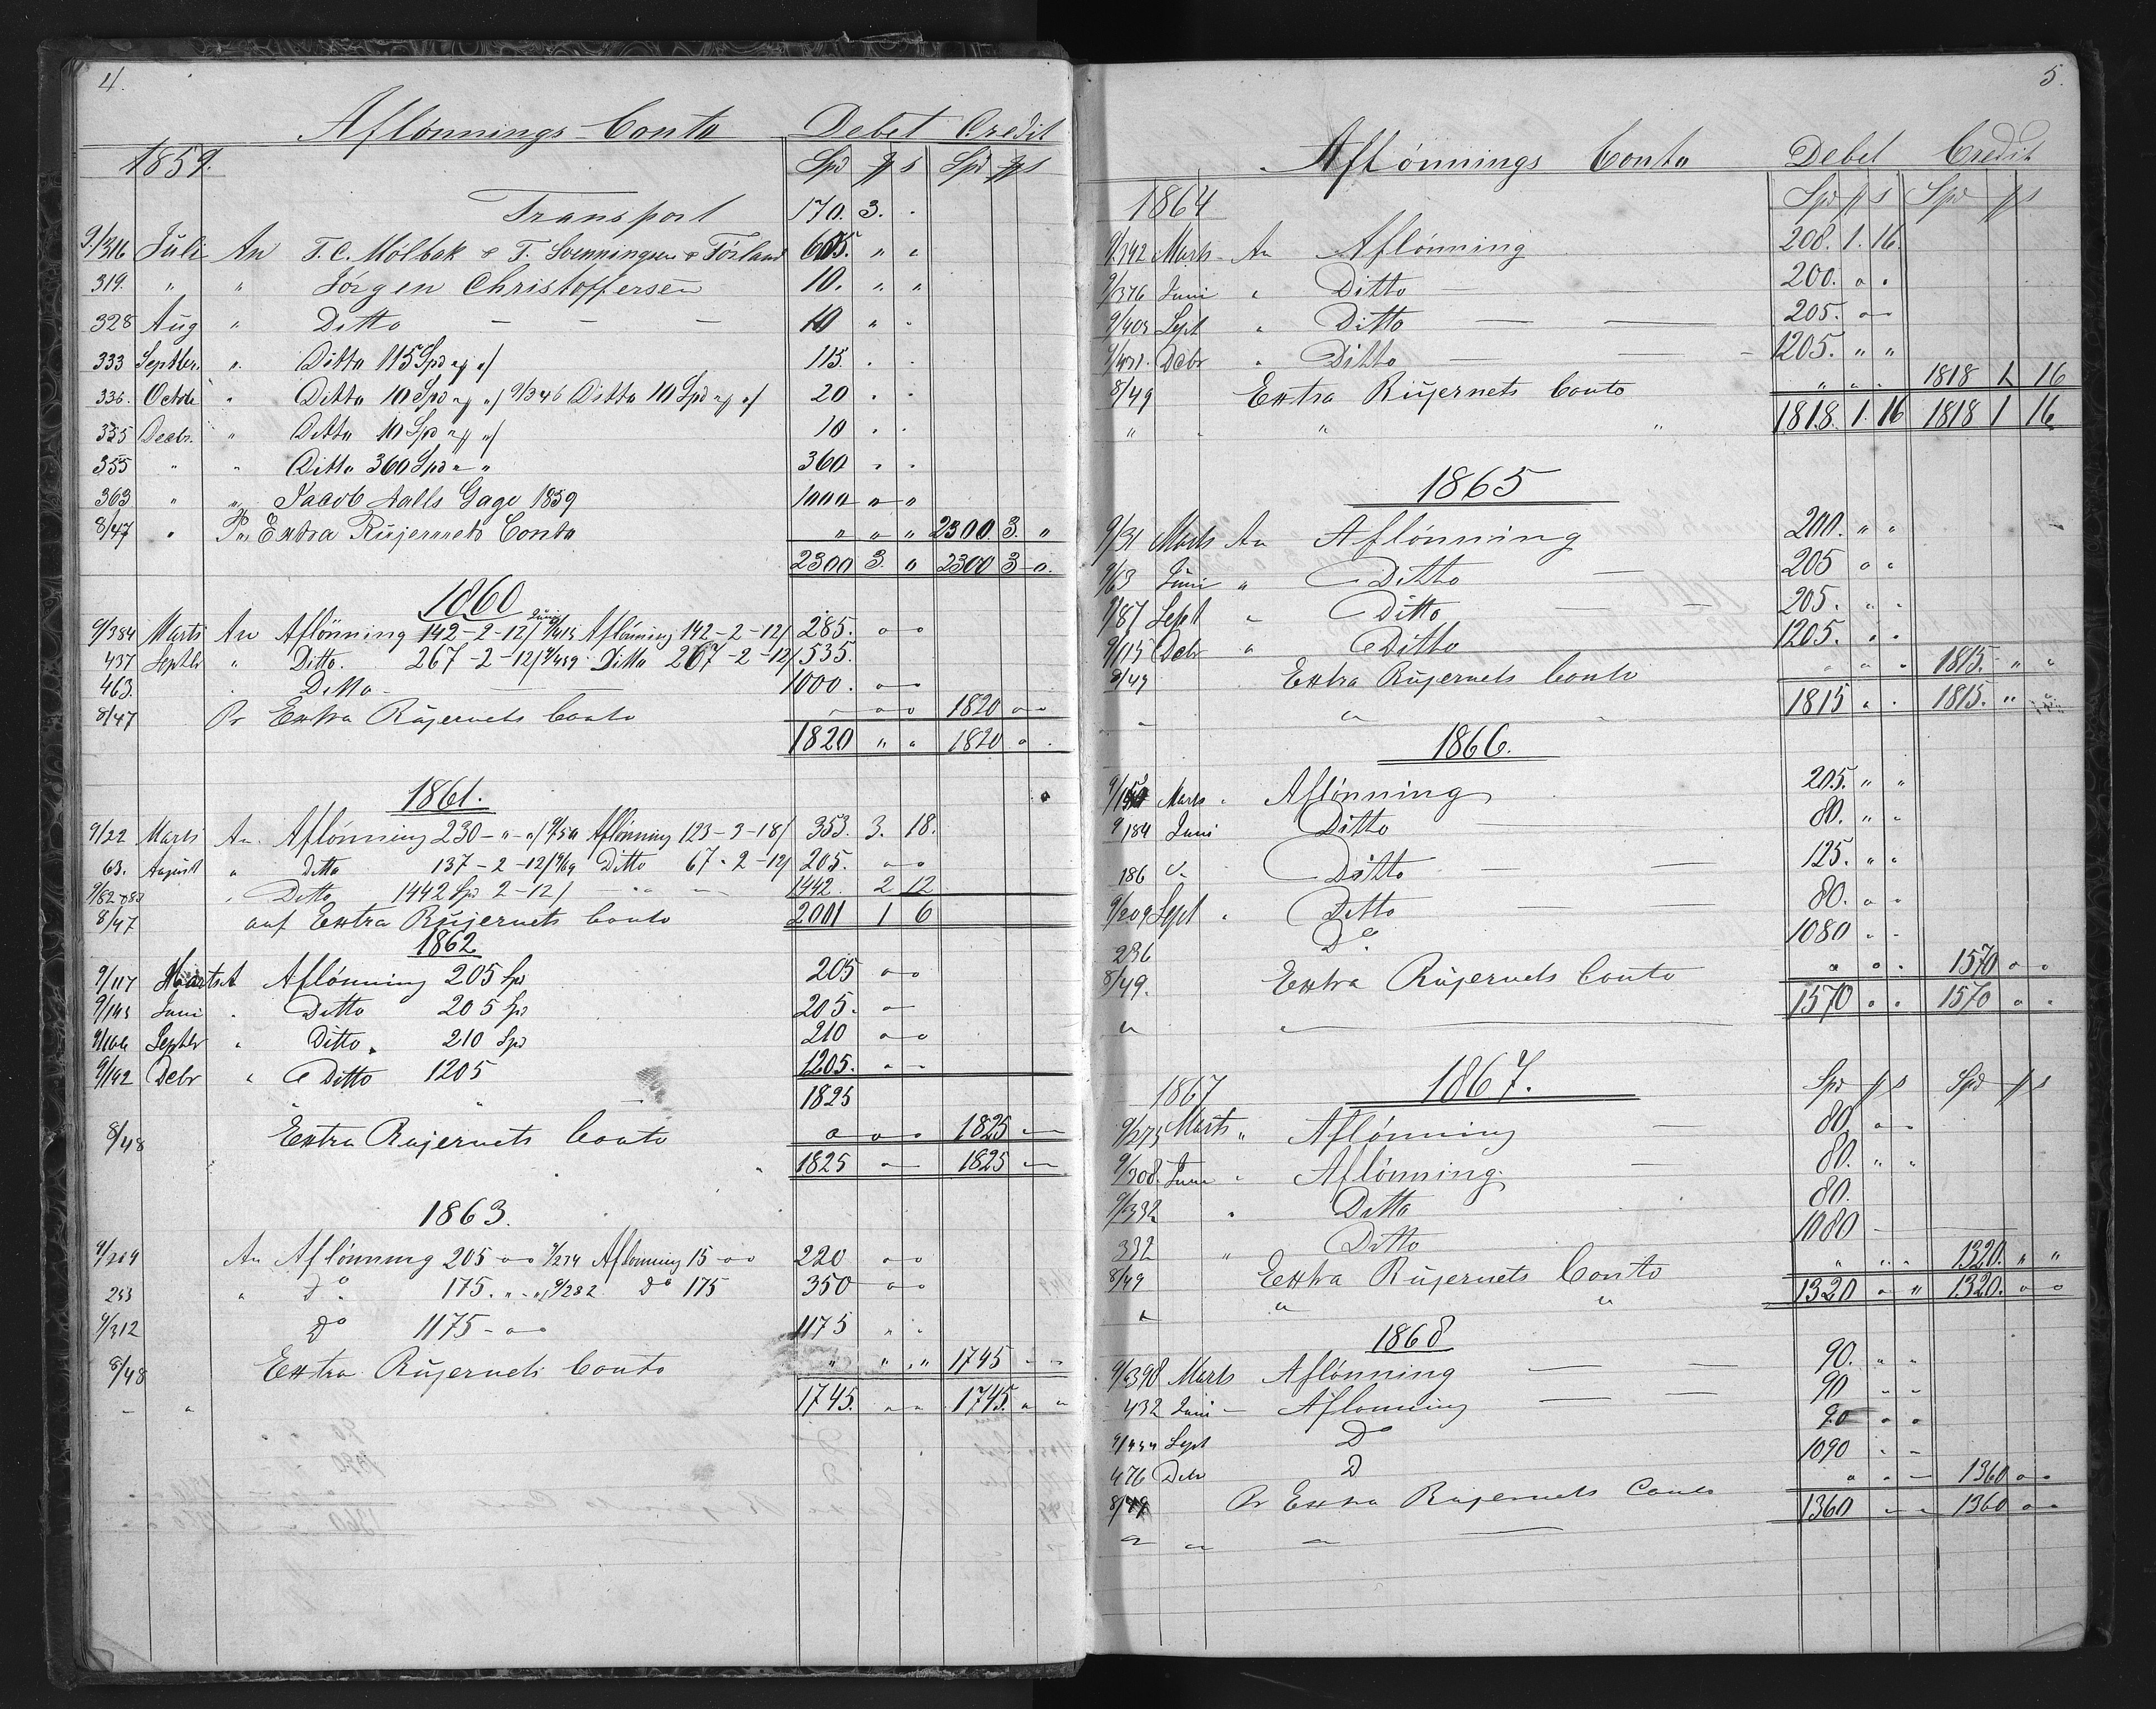 4.
Aflønnings-Conto Debet Credit
1859. Spd ß Spd ß
Transport 170. 3. "
9/316 Juli An T. C. Mölbak & T. Svenningsen & Förland 605. " "
319. " " Jørgen Christoffersen 10. " "
328 Aug " Ditto — — — 10 " "
333 Septbr. " Ditto 115 Spd " " 115. " "
336. Octobr " Ditto 10 Spd " " 9/346 Ditto 10 Spd " " 20 " "
355 Decbr. " Ditto 10 Spd " " 10 " "
355 " " Ditto 360 Spd " " 360 " "
363 " " Jacob Aalls Gage 1859 1000 " "
8/47 " Pr Extra Rüjernets Conto " " " 2300. 3. "
2300 3. " 2300 3 "
1860
9/384 Marts An Aflönning 142-2-12/ Juni 9/415 Aflönning 142-2-12/ 285. " "
437 Septbr " Ditto. 267-2-12/ 9/459 Ditto 267-2-12/ 535.
463. Ditto — 1000. " "
8/47 Pr Extra Rüjernets Conto " " " 1820 " "
1820 " " 1820 " "
1861.
9/22 Marts An Aflönning 230-"-"/ 9/50 Aflönning 123-3-18/ 353. 3. 18.
63. August " Ditto 137-2-12/ 9/69 Ditto 67-2-12/ 205. " "
9/82 & 83 " Ditto 1442 Spd 2-12/ 1442. 2 12
8/47 auf Extra Rüjernets Conto 2001 1 6
1862
9/117 Marts A Aflönning 205 Spd 205 " "
9/143 Juni " Ditto 205 Spd 205. "
9/166 Septbr " Ditto 210 Spd 210 " "
9/192 Debr " Ditto 1205 1205. " "
1825
8/48 Extra Rujernets Conto " " " 1825 "
1825 " 1825 "
1863.
9/209 An Aflönning 205 " " 9/274 Aflönning 15 " " 220 " "
253 " Do 175. " " 9/282 Do 175 350 " "
9/312 Do 1175 - " " 1175 " "
8/48 Extra Rüjernets Conto " " " 1745 " "
" " 1745. " " 1745. " "
5.
Aflönnings Conto Debet Credit
1864 Spd ß Spd ß
9/342 Marts An Aflönning 208. 1. 16.
9/376 Juni " Ditto — 200. " "
9/403 Sept " Ditto — — 205. " "
9/431. Debr " Ditto — — 1205. " "
8/49 Extra Rüjernets Conto " " " 1818 1 16
" " " " 1818. 1. 16 1818 1 16
1865
9/31 Marts An Aflönning 200. " "
9/63 Juni " Ditto — 205 " "
9/87 Sept " Ditto — — 205. " "
9/115 Debr " Ditto 1205. " "
8/49 Extra Rüjernets Conto " " " 1815. " "
" " 1815 " " 1815. " "
1866.
Marts " Aflönning 205. " "
9/184 Juni Ditto — 80. " "
186 " Ditto — — 125. " "
9/209 Sept " Ditto — — 80. " "
236 Do 1080 " "
8/49. Extra Rüjernets Conto " " " 1570 " "
" " 1570 " " 1570 " "
1867 1867. Spd ß Spd ß
9/275 Marts " Aflönning — 80 " "
9/308. Juni " Aflönning — 80. " "
9/332 " Ditto 80.
332 " Ditto 1080 —
8/49 Extra Rüjernets Conto " " " 1320. " "
" " " 1320 " " 1320. " "
1868
9/398 Marts Aflönning — — 90. " "
432 Juni — Aflonning — — 90 " "
Sept Do 90 " "
476 Debr D 1090 " "
8/49 Pr Extra Rujernets Conto " " " 1360 " "
" " " 1360 " " 1360 " "